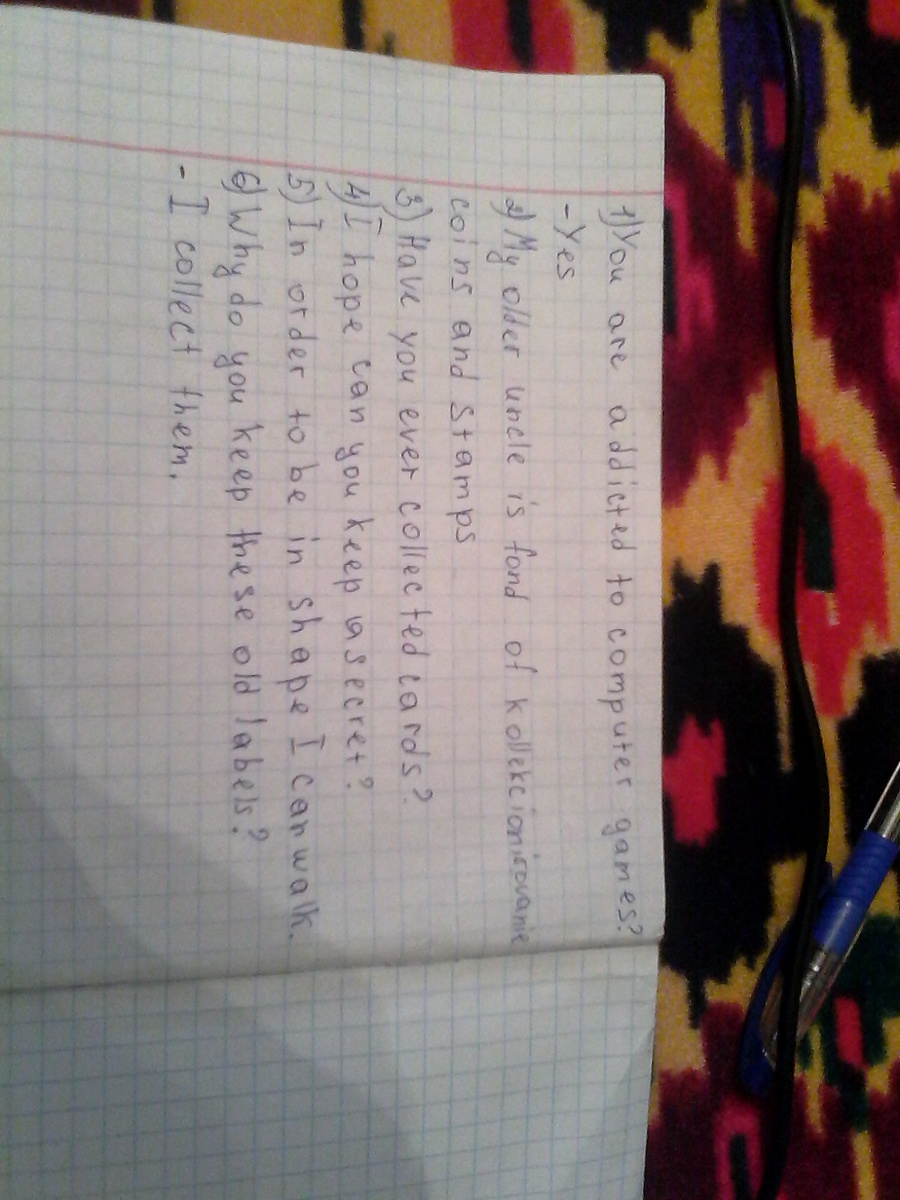 1) You are addicted to computer games?
- Yes
2) My older uncle is fond of kollekcionirovanie
coins and stamps
3) Have you ever collected cards?
4) I hope can you keep a secret?
5) In order to be in shape I can walk.
6) Why do you keep these old labels?
- I collect them.